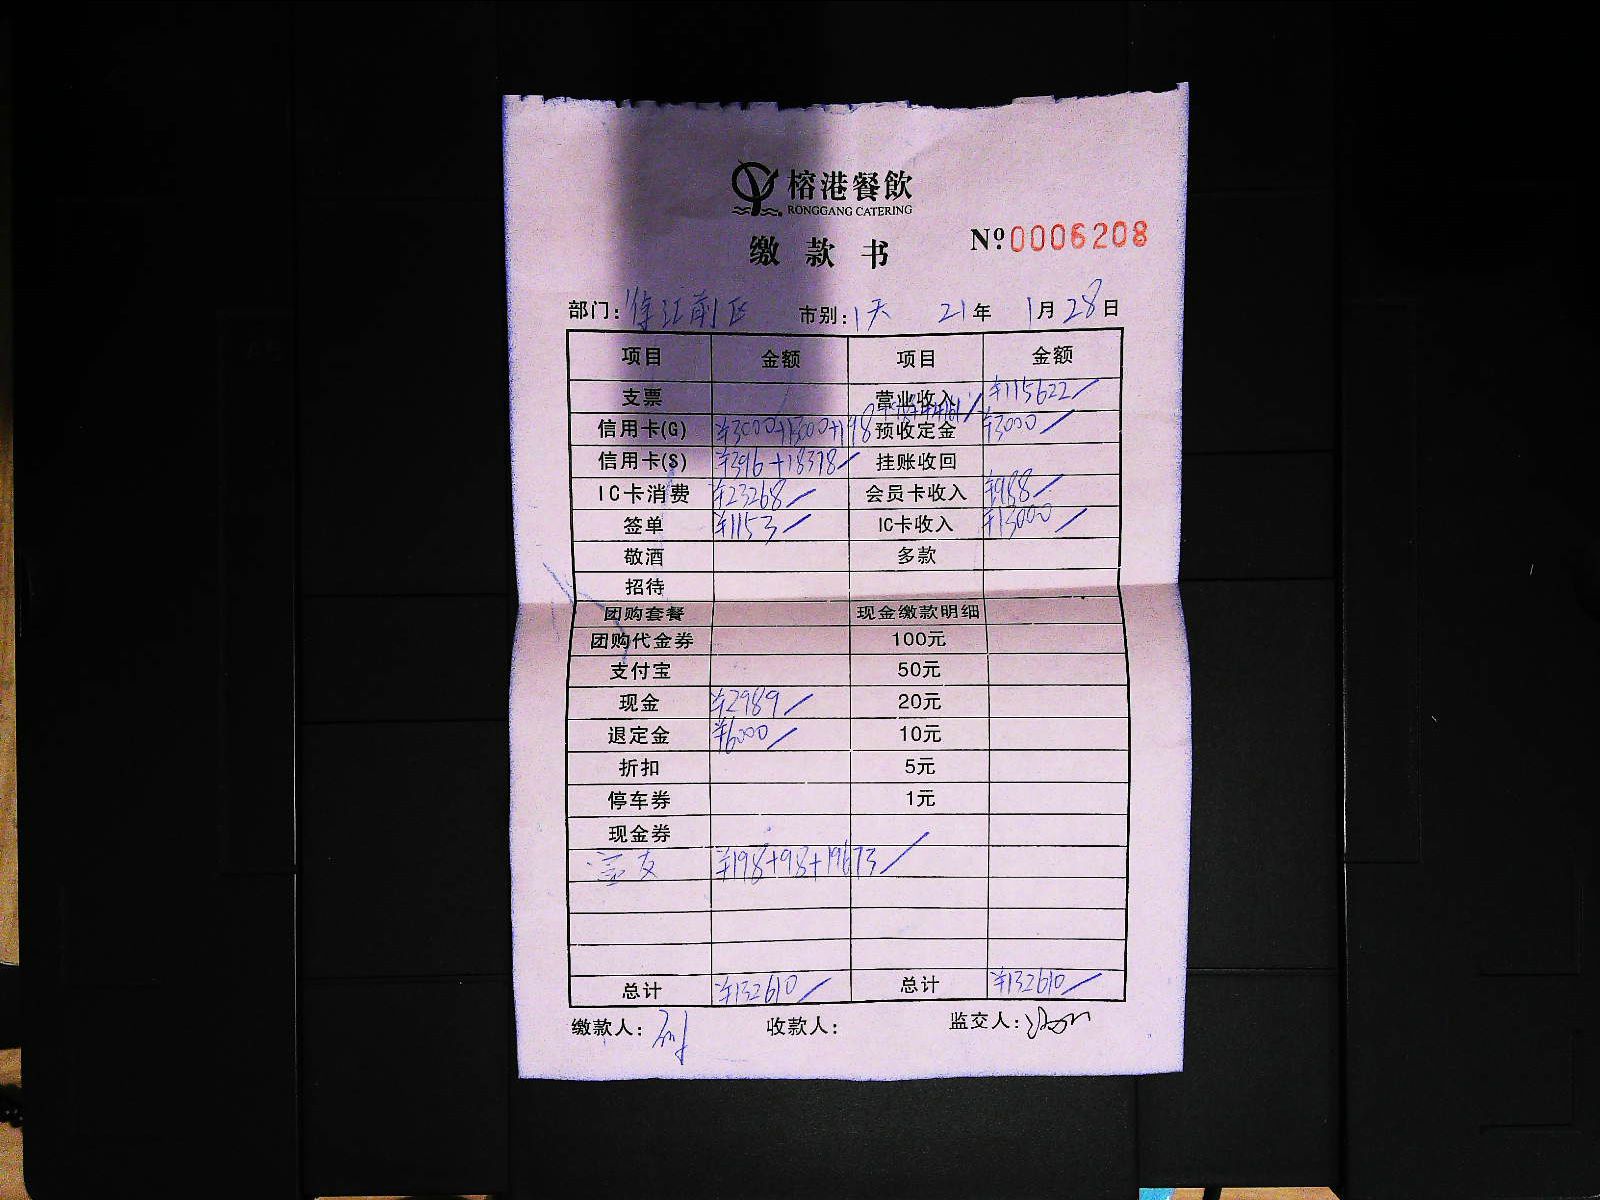 榕港餐飲
RONGGANG CATERING
缴款书
№0006208
部门: 江前区 市别: 1天 21年 1月28日
项目 金额 项目 金额
支票 营业收入 ¥115622
信用卡(G) ¥3000+13000+198 预收定金 ¥3000
信用卡(S) ¥396+18378 挂账收回
IC卡消费 ¥23268 会员卡收入 ¥988
签单 ¥1153 IC卡收入 ¥13000
敬酒 多款
招待
团购套餐 现金缴款明细
团购代金券 100元
支付宝 50元
现金 ¥2989 20元
退定金 ¥6000 10元
折扣 5元
停车券 1元
现金券
¥198+98+19673
总计 ¥132610 总计 ¥132610
缴款人: 收款人: 监交人: